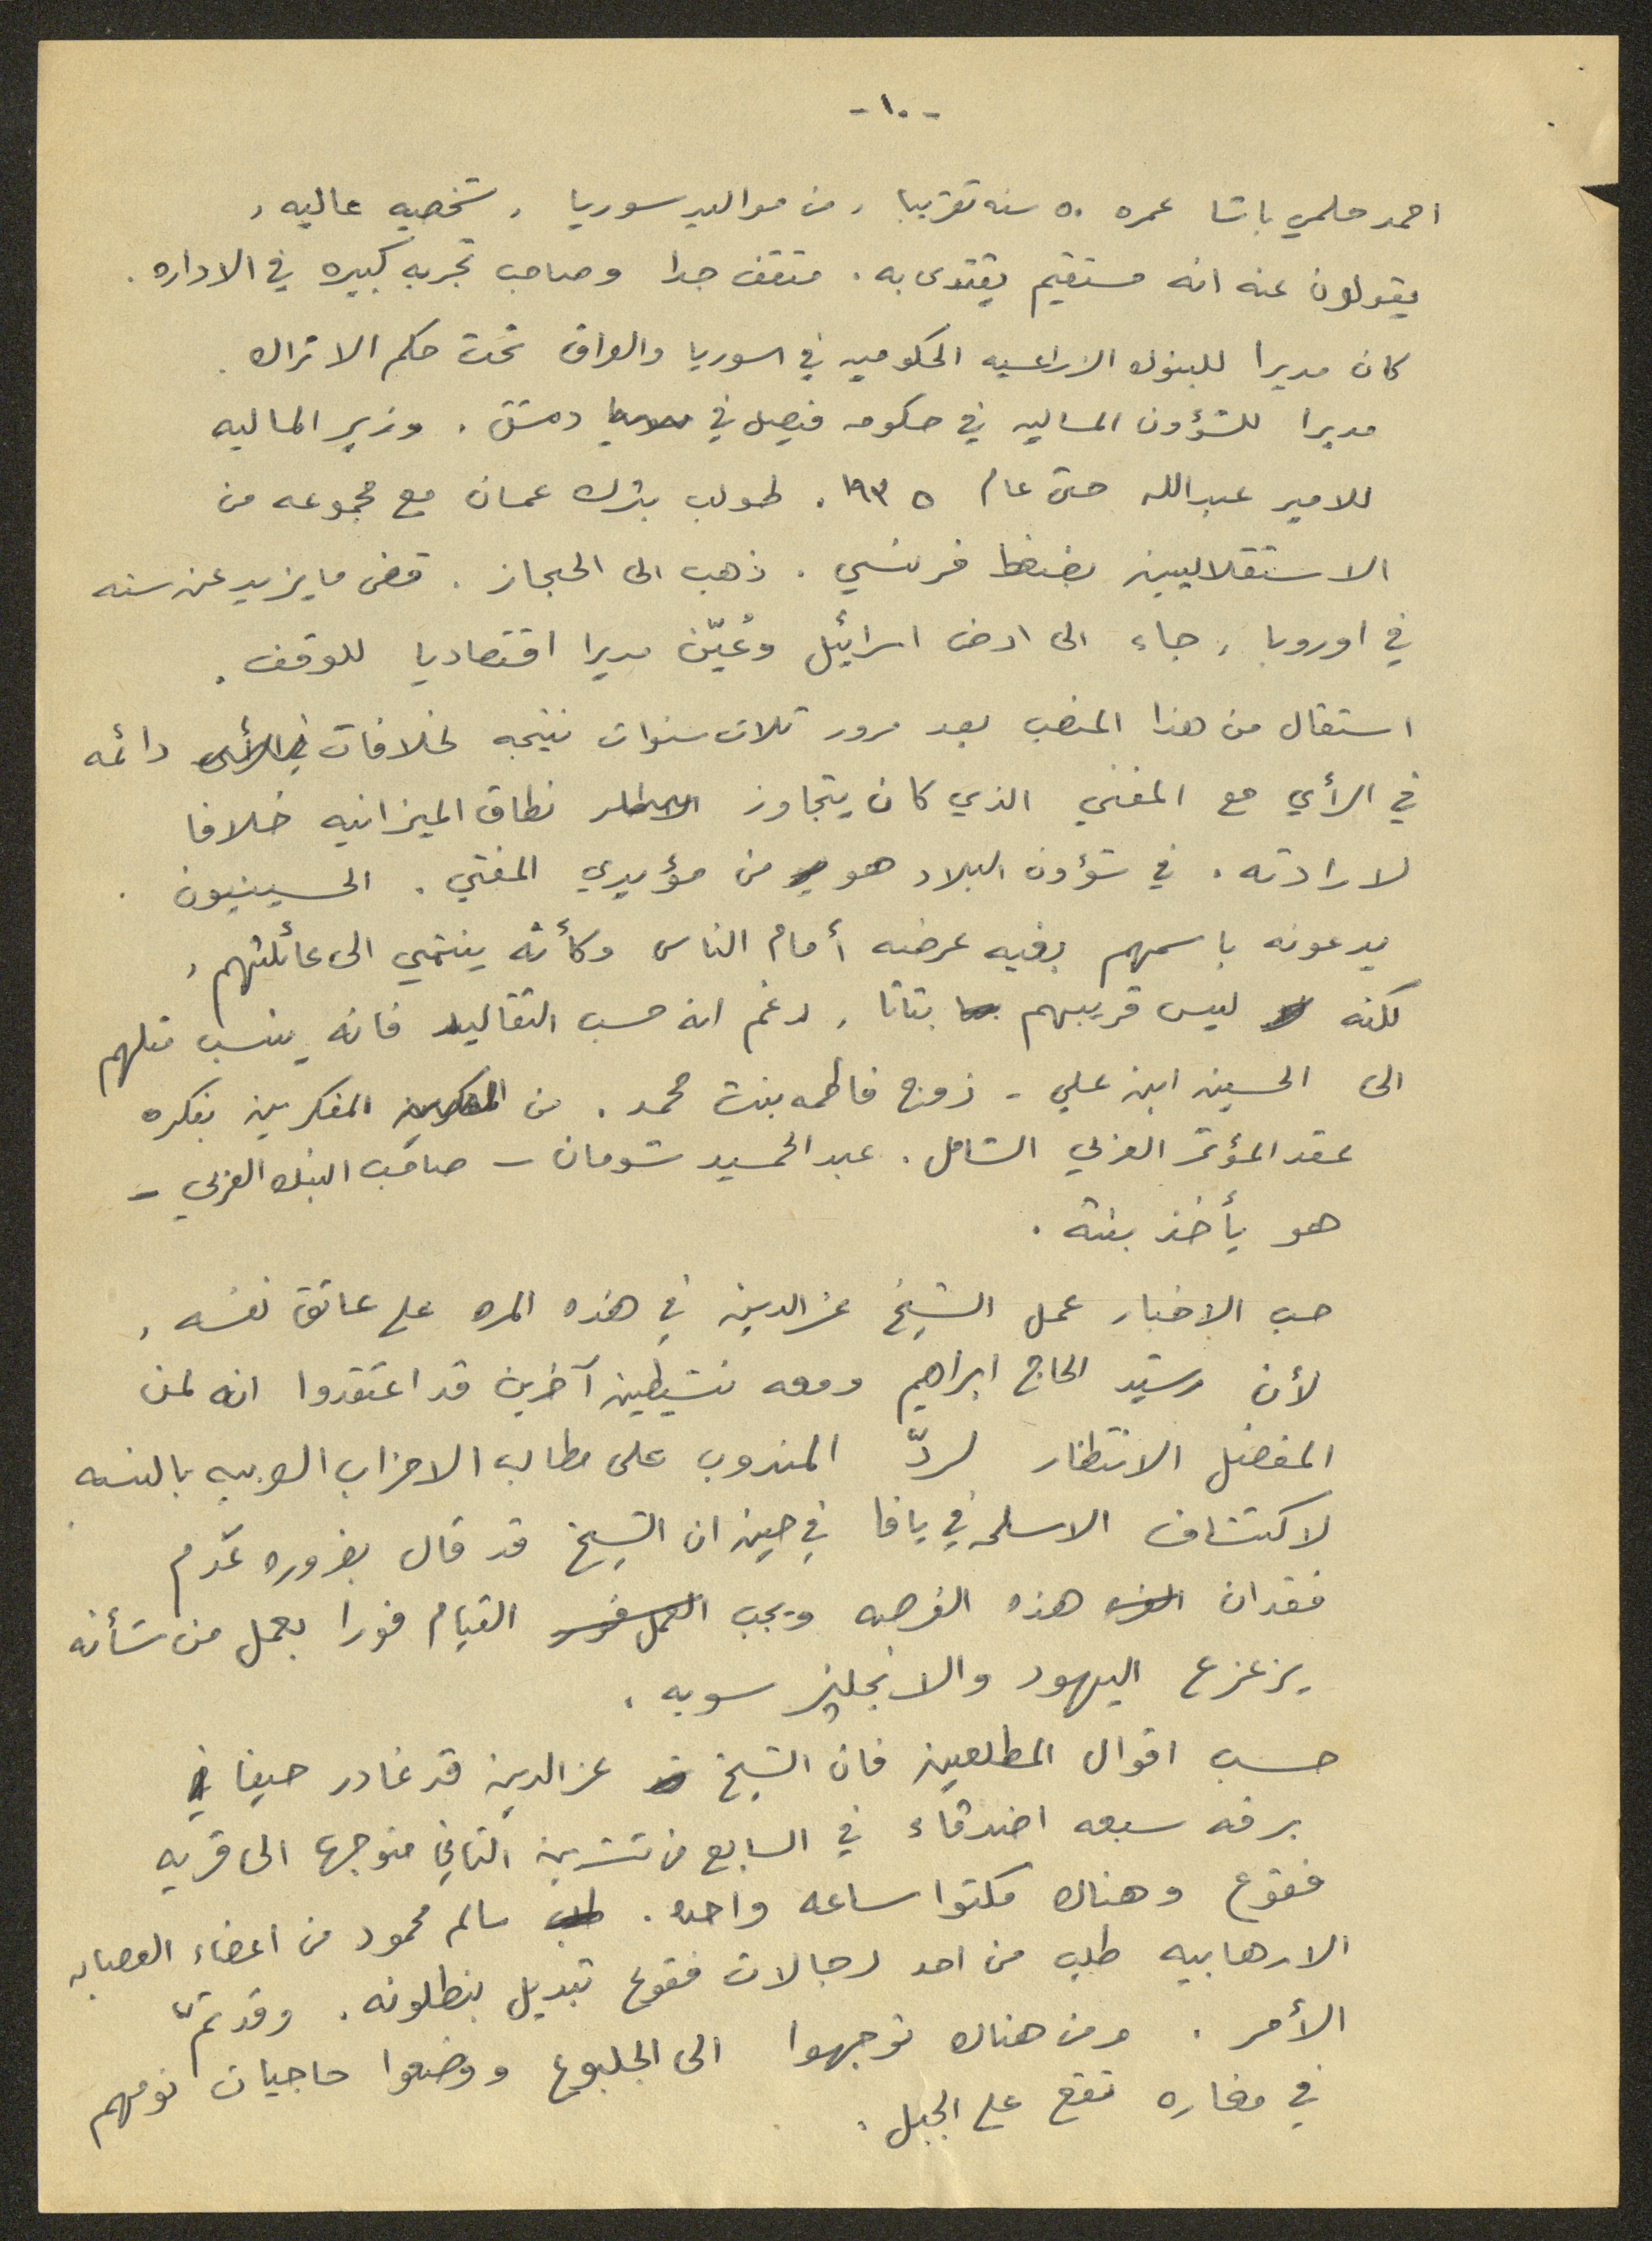 -١٠-
احمد حلمي باشا عمره ٥٠ سنه تقريبا، من مواليد سوريا، شخصيه عاليه،
يقولون عنه انه مستقيم يقتدى به. مثقف جدا وصاحب تجربه كبيره في الاداره.
كان مديرا للبنوك الزراعيه الحكوميه في سوريا والعراق تحت حكم الاتراك.
مديرا للشؤون الماليه في حكومه فيصل في دمشق. وزير الماليه
للامير عبدالله حتى عام ١٩٣٥. طولب بترك عمان مع مجموعه من
الاستقلاليين بضغط فرنسي. ذهب الى الحجاز. قضى ما يزيد عن سنه
في اوروبا، جاء الى ارض اسرائيل وعُيّن مديرا اقتصاديا للوقف.
استقال من هذا المنصب بعد مرور ثلاث سنوات نتيجه لخلافات في الرأي دائمه
في الرأي مع المفتي الذي كان يتجاوز نطاق الميزانيه خلافا
لارادته. في شؤون البلاد هو من مؤيدي المفتي. الحسينيون
يدعونه باسمهم بغيه عرضه أمام الناس وكأنه ينتمي الى عائلتهم،
لكنه ليس قريبهم بتاتا، رغم انه حسب التقاليد فانه ينسب مثلهم
الى الحسين ابن علي - زوج فاطمه بنت محمد. من المفكرين بفكره
عقد المؤتمر العربي الشامل. عبد الحميد شومان - صاحب البنك العربي -
هو يأخذ بنته.
حسب الاخبار عمل الشيخ عز الدين في هذه المره على عاتق نفسه،
لأن رشيد الحاج ابراهيم ومعه نشيطين آخرين قد اعتقدوا انه لمن
المفضل الانتظار لردّ المندوب على مطالب الاحزاب العربيه بالنسبه
لاكتشاف الاسلحه في يافا في حين ان الشيخ قد قال بضروره عدم
فقدان هذه الفرصه ويجب العمل فورا القيام فورا بعمل من شأنه
يزعزع اليهود والانجليز سويه.
حسب اقوال المطلعين فان الشيخ عز الدين قد غادر حيفا
برفقه سبعه اصدقاء في السابع من تشرين الثاني متوجها الى قريه
فقوع وهناك مكثوا ساعه واحده. طلب سالم محمود من اعضاء العصابه
الارهابيه طلب من احد رجالات فقوع تبديل بنطلونه. وقد تمّ
الأمر. ومن هناك توجهوا الى الجلبوع ووضعوا حاجيات نومهم
في مغاره تقع على الجبل.